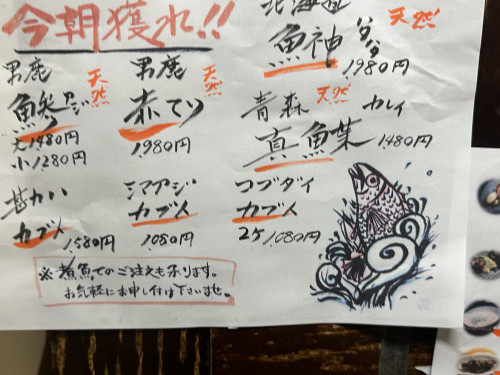 今朝獲れ!!
北海道
天然!
魚神 ハタハタ
1980円
男鹿
天然
鯵 アジ
大1480円
小1280円
男鹿
天然
赤てり
1980円
青森
天然!
カレイ
真鰈
1480円
カブ人
1580円
シマアジ
カブ人
1080円
コブダイ
カブ人
1080円
※煮魚でのご注文も承ります。
お気軽にお申し付け下さいませ。